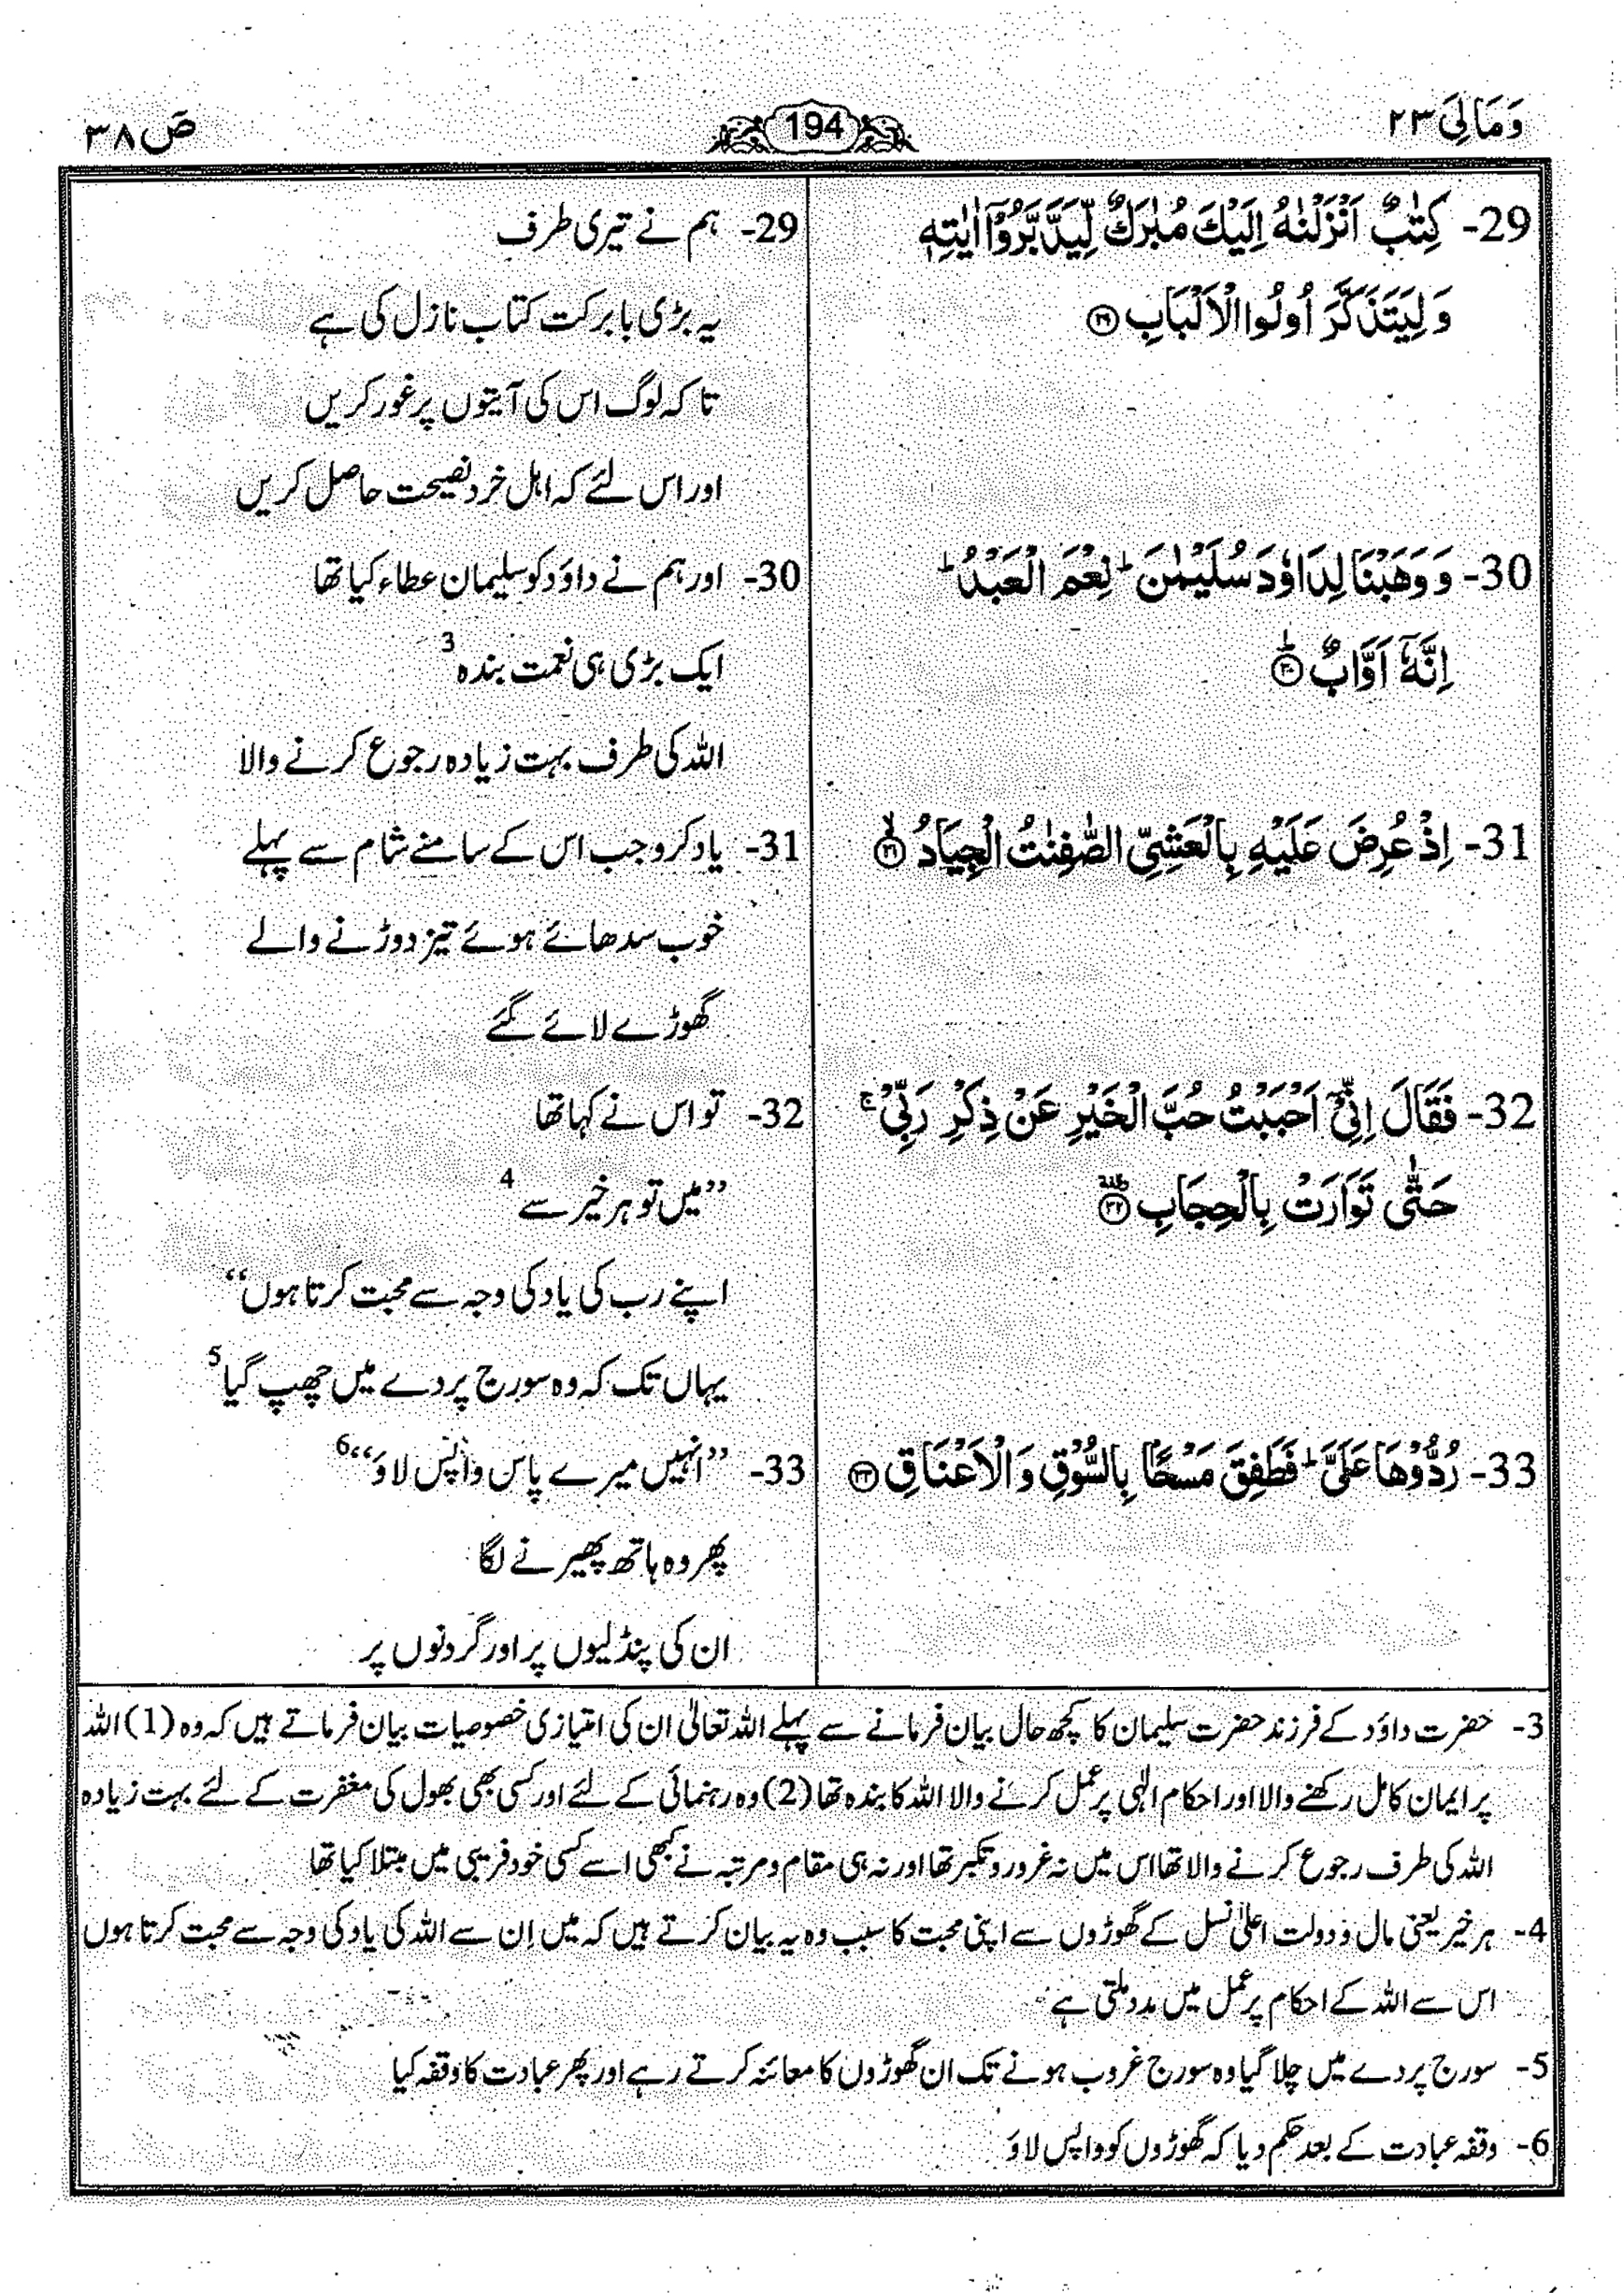 وَمَالِیَ ٢٣
194
صٓ ٣٨
29- كِتٰبٌ اَنْزَلْنٰهُ اِلَيْكَ مُبٰرَكٌ لِّيَدَّبَّرُوْۤا اٰيٰتِهٖ
وَ لِيَتَذَكَّرَ اُولُوا الْاَلْبَابِ ﴿٢٩﴾
30- وَ وَهَبْنَا لِدَاوٗدَ سُلَيْمٰنَ ؕ نِعْمَ الْعَبْدُ ؕ
اِنَّهٗۤ اَوَّابٌ ﴿٣٠﴾
31- اِذْ عُرِضَ عَلَيْهِ بِالْعَشِيِّ الصّٰفِنٰتُ الْجِيَادُ ﴿٣١﴾
32- فَقَالَ اِنِّيْۤ اَحْبَبْتُ حُبَّ الْخَيْرِ عَنْ ذِكْرِ رَبِّيْ ۚ
حَتّٰى تَوَارَتْ بِالْحِجَابِ ﴿٣٢﴾
33- رُدُّوْهَا عَلَيَّ ؕ فَطَفِقَ مَسْحًۢا بِالسُّوْقِ وَ الْاَعْنَاقِ ﴿٣٣﴾
29- ہم نے تیری طرف
یہ بڑی بابرکت کتاب نازل کی ہے
تاکہ لوگ اس کی آیتوں پر غور کریں
اور اس لئے کہ اہل خرد نصیحت حاصل کریں
30- اور ہم نے داؤد کو سلیمان عطاء کیا تھا
ایک بڑی ہی نعمت بندہ 3
اللہ کی طرف بہت زیادہ رجوع کرنے والا
31- یاد کرو جب اس کے سامنے شام سے پہلے
خوب سدھائے ہوئے تیز دوڑنے والے
گھوڑے لائے گئے
32- تو اس نے کہا تھا
”میں تو ہر خیر سے 4
اپنے رب کی یاد کی وجہ سے محبت کرتا ہوں“
یہاں تک کہ وہ سورج پردے میں چھپ گیا 5
33- ”انہیں میرے پاس واپس لاؤ“ 6
پھر وہ ہاتھ پھیرنے لگا
ان کی پنڈلیوں پر اور گردنوں پر
3- حضرت داؤد کے فرزند حضرت سلیمان کا کچھ حال بیان فرمانے سے پہلے اللہ تعالیٰ ان کی امتیازی خصوصیات بیان فرماتے ہیں کہ وہ (1) اللہ
پر ایمان کامل رکھنے والا اور احکام الٰہی پر عمل کرنے والا اللہ کا بندہ تھا (2) وہ رہنمائی کے لئے اور کسی بھی بھول کی مغفرت کے لئے بہت زیادہ
اللہ کی طرف رجوع کرنے والا تھا اس میں نہ غرور و تکبر تھا اور نہ ہی مقام و مرتبہ نے کبھی اسے کسی خود فریبی میں مبتلا کیا تھا
4- ہر خیر یعنی مال و دولت اعلیٰ نسل کے گھوڑوں سے اپنی محبت کا سبب وہ یہ بیان کرتے ہیں کہ میں اِن سے اللہ کی یاد کی وجہ سے محبت کرتا ہوں
اس سے اللہ کے احکام پر عمل میں مدد ملتی ہے
5- سورج پردے میں چلا گیا وہ سورج غروب ہونے تک ان گھوڑوں کا معائنہ کرتے رہے اور پھر عبادت کا وقفہ کیا
6- وقفہ عبادت کے بعد حکم دیا کہ گھوڑوں کو واپس لاؤ